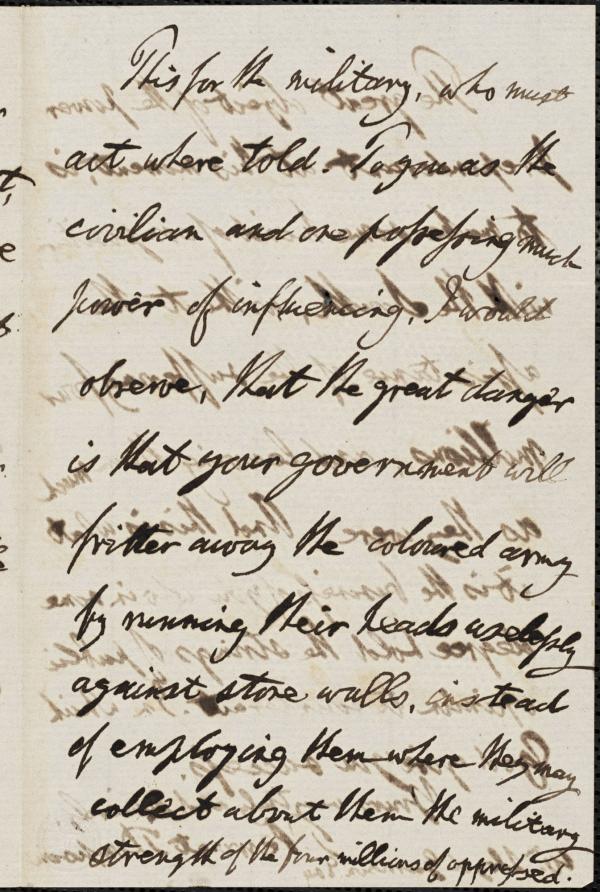 This for the military, who must
act where told. To you as the
civilian and one possessing much
power of influencing, I would
observe, that the great danger
is that your government will
fritter away the coloured army
by running their heads uselessly
against stone walls, instead
of employing them where they may
collect about them the military
strength of the four millions of oppressed.